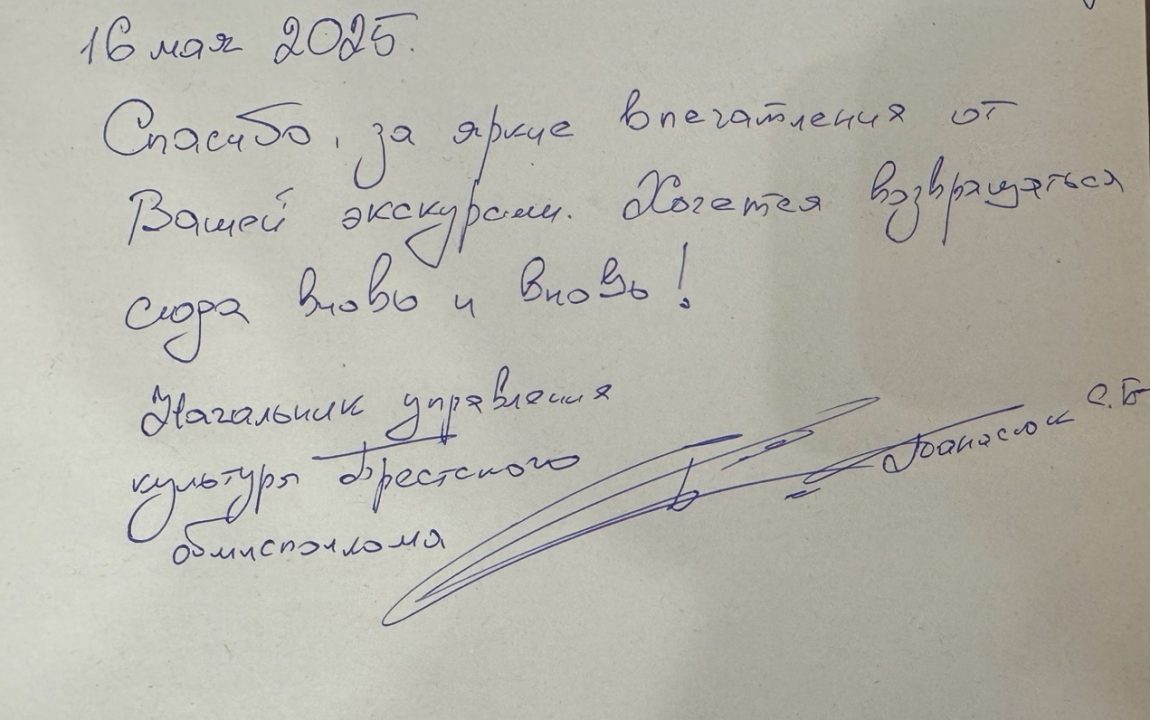 16 мая 2025.
Спасибо, за яркие впечатления от
Вашей экскурсии. Хочется возвращаться
сюда вновь и вновь!
Начальник управления
культуры Брестского
облисполкома
Панасюк С.Б